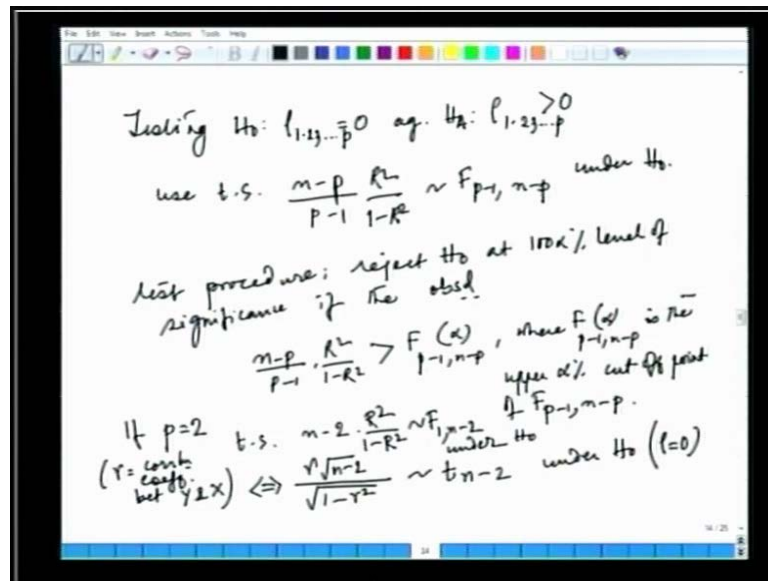 File Edit View Insert Actions Tools Help
Testing H₀: ρ₁.₂₃...ₚ = 0 ag. H_A: ρ₁.₂₃...ₚ > 0
use t.s. (n-p)/(p-1) R²/(1-R²) ~ F_{p-1, n-p} under H₀.
test procedure; reject H₀ at 100α% level of
significance if the obsd..
(n-p)/(p-1) · R²/(1-R²) > F_{p-1,n-p}(α), where F_{p-1,n-p}(α) is the
upper α% cut off point
of F_{p-1,n-p}.
If p=2 t.s. n-2 · R²/(1-R²) ~ F_{1,n-2} under H₀
(r = corrl. coeff. bet Y & X) ⇔ r√(n-2)/√(1-r²) ~ t_{n-2} under H₀ (ρ=0)
14 / 25
24